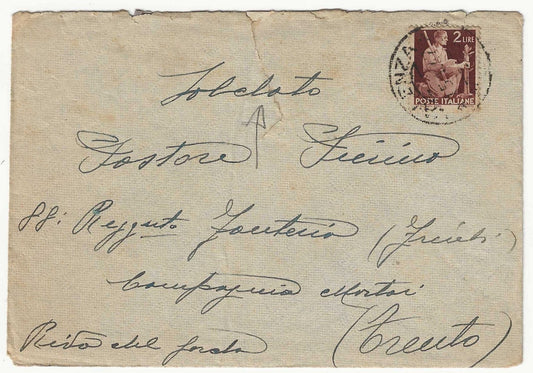 2 LIRE
POSTE ITALIANE
ENZA
Soldato
Pastore
88: Reggto Fanteria (Friuli)
Compagnia Mortai
Riva del Garda (Trento)